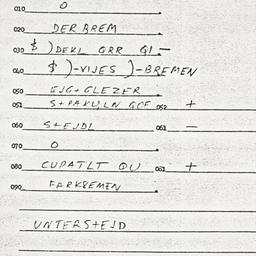 010 O
020 DER BREM
030 $ ) DEKL QRR QI.–
040 $ )-VIJES )-BREMEN
050 EJG+GLEZER
051 S+PAKULN GOF 052 +
060 S+EJDL 061 –
070 O
080 CUPATLT QU 081 +
090 FARKREMEN
UNTERS+EJD